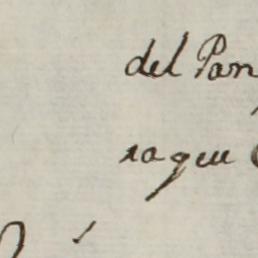 del Pan
raque